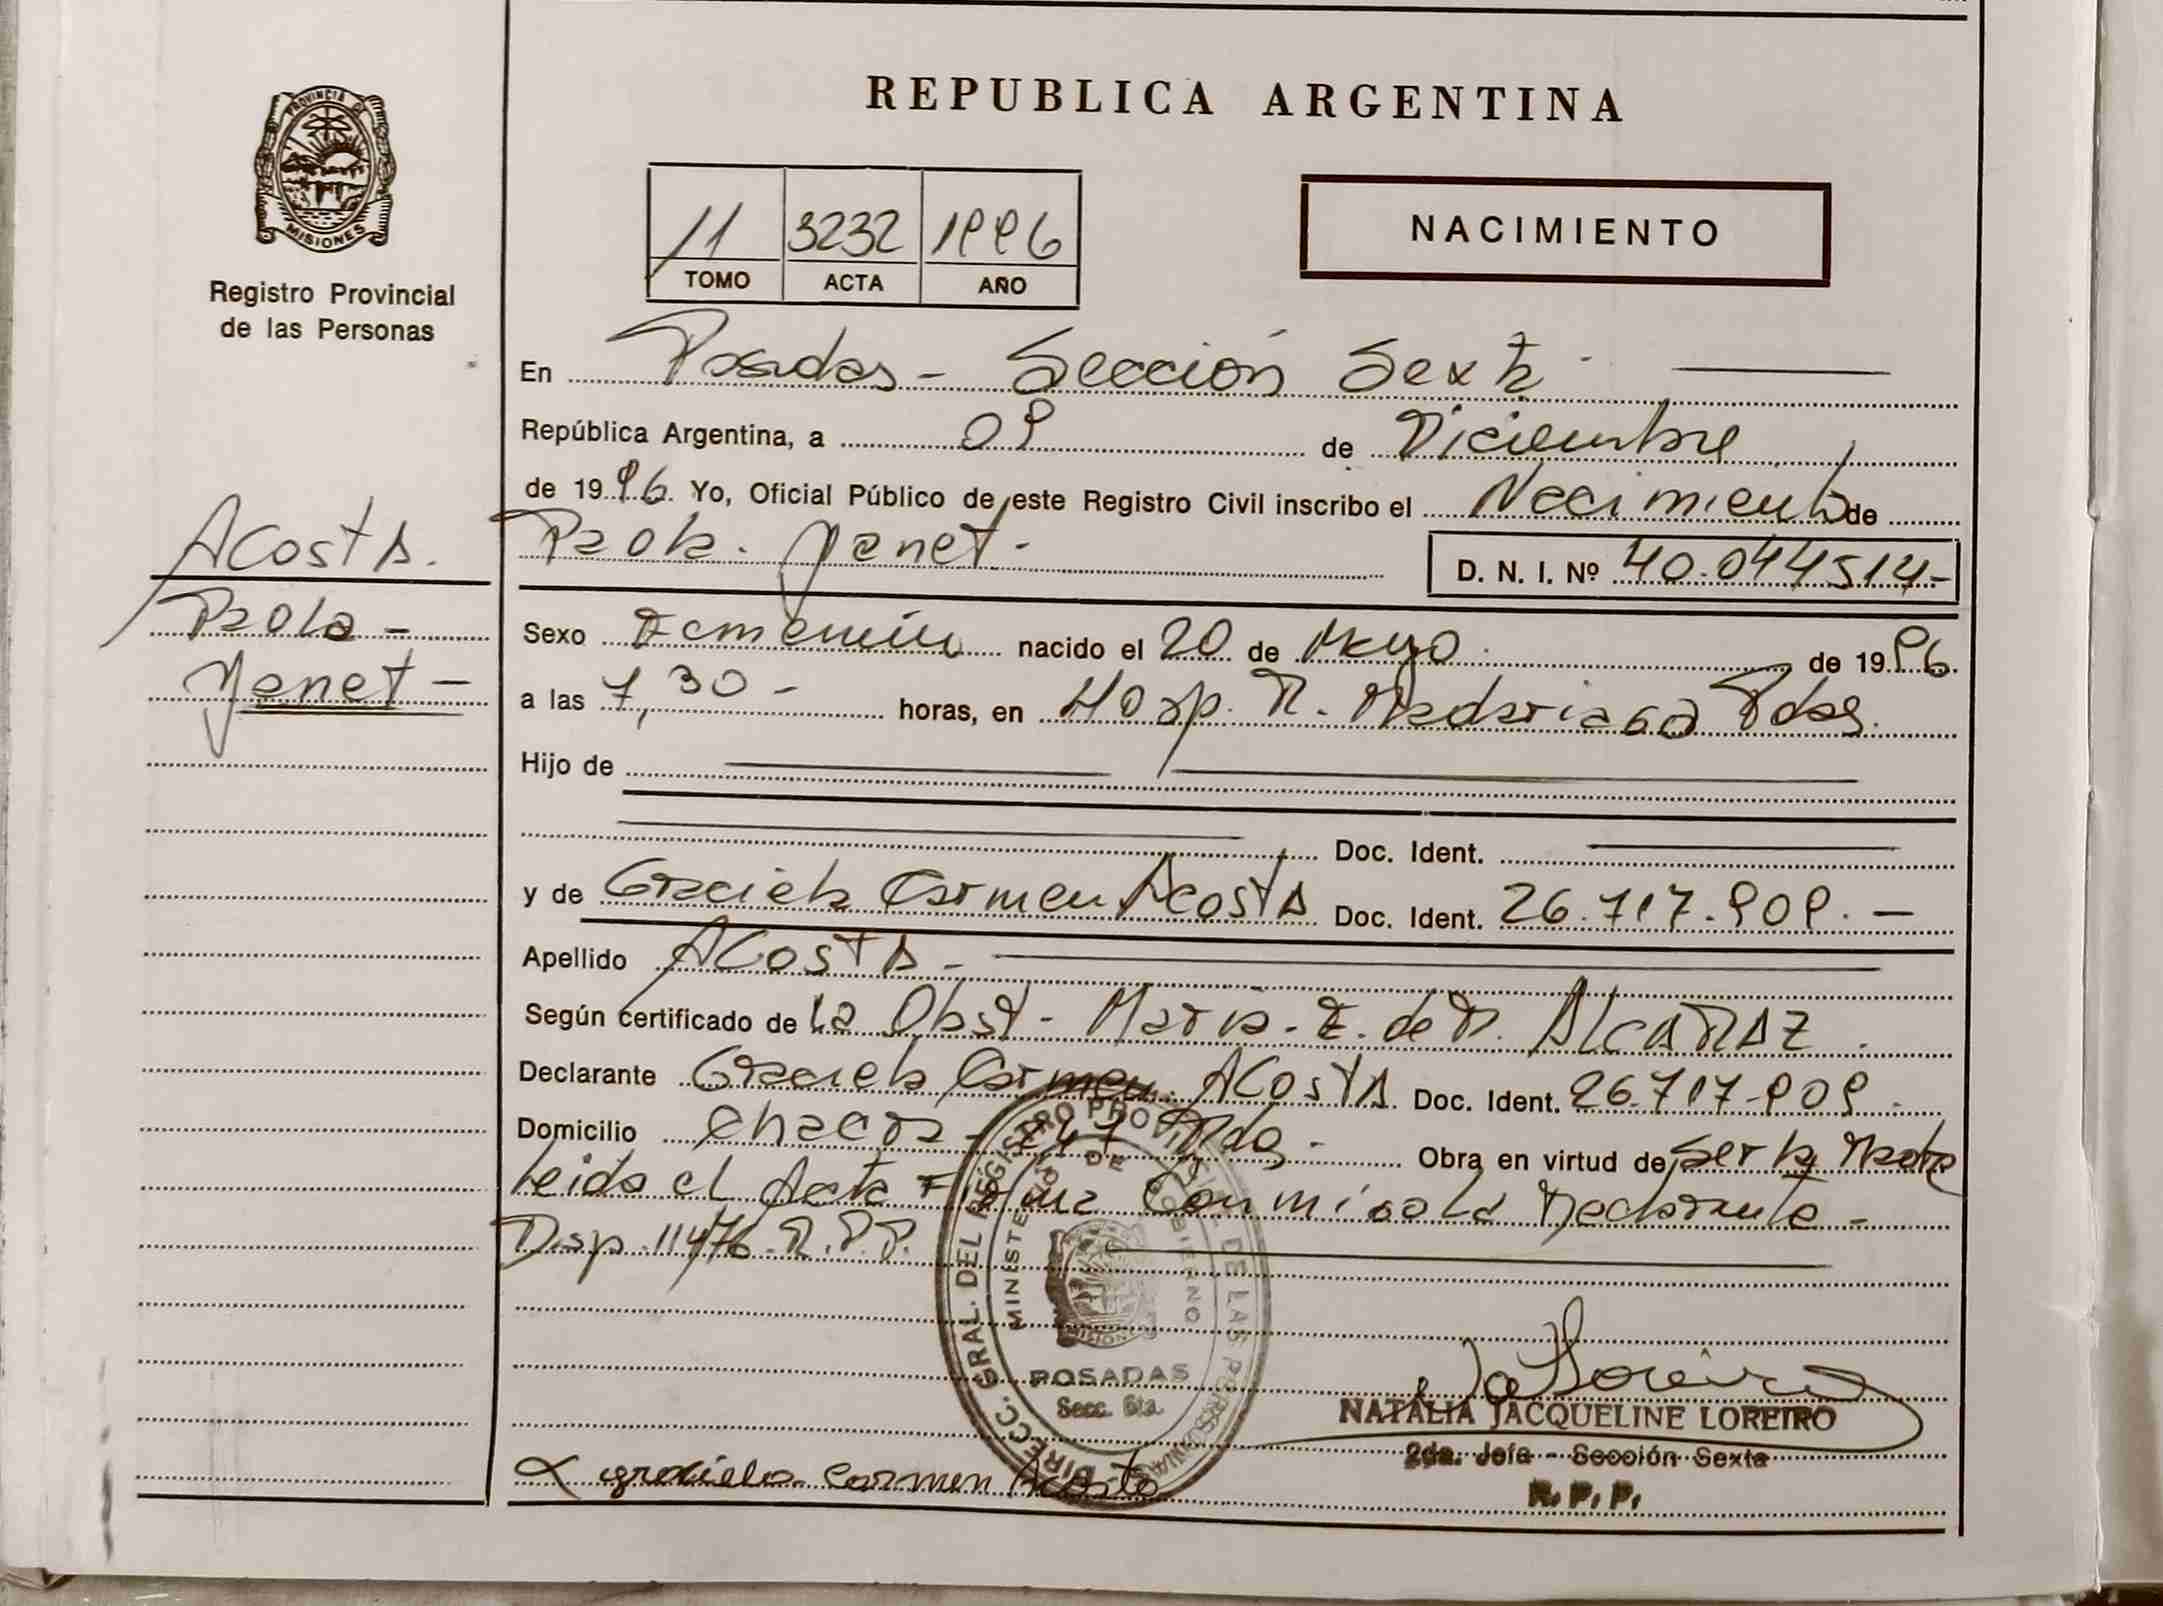 REPUBLICA ARGENTINA
PROVINCIA DE
MISIONES
Registro Provincial
de las Personas
11 3232 1996
TOMO ACTA AÑO
NACIMIENTO
En Posadas - Sección Sexta -
República Argentina, a 09 de Diciembre
de 1996. Yo, Oficial Público de este Registro Civil inscribo el Nacimiento de
Paola Yanet - D. N. I. Nº 40.044514-
Acosta.
Paola -
Yanet -
Sexo Femenino nacido el 20 de Mayo de 1996.
a las 7,30 - horas, en Hosp. R. Madariaga Pdas.
Hijo de
Doc. Ident.
y de Graciela Carmen Acosta Doc. Ident. 26.717.909. -
Apellido Acosta -
Según certificado de la Obst - Maria - E. de R. Alcaraz.
Declarante Graciela Carmen Acosta Doc. Ident. 26.717.909.
Domicilio Chacra 147 Pdas - Obra en virtud de ser la Madre
Leida el Acta Firma Conmigo la Declarante -
Disp. 114/76. R.P.P.
DIRECC. GRAL. DEL REGISTRO PROVINCIAL DE LAS PERSONAS
MINISTERIO DE GOBIERNO
MISIONES
POSADAS
Secc. 6ta.
NATALIA JACQUELINE LOREIRO
2da. Jefa - Sección Sexta
R. P. P.
Graciela Carmen Acosta